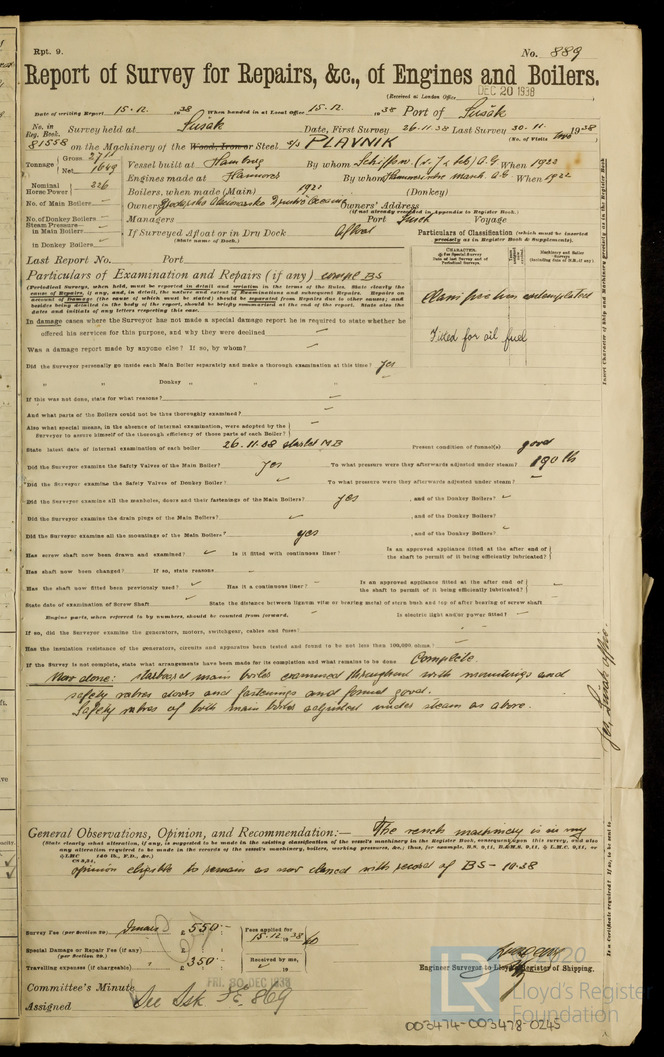 Rpt. 9.
No. 889
Report of Survey for Repairs, &c., of Engines and Boilers.
(Received at London Office DEC 20 1938 )
Date of writing Report 15.12. 1938 When handed in at Local Office 15.12. 1938 Port of Sušak
No. in Reg. Book. Survey held at Sušak Date, First Survey 26.11.38 Last Survey 30.11. 1938
(No. of Visits two)
81558 on the Machinery of the Wood, Iron or Steel s/s PLAVNIK
Tonnage { Gross Net 1649
Vessel built at Hamburg By whom When 1922
Engines made at Hannover By whom When 1922
Nominal Horse Power } 226
Boilers, when made (Main) 1922 (Donkey)
No. of Main Boilers
Owners Owners' Address
(if not already recorded in Appendix to Register Book.)
No. of Donkey Boilers
Managers Port Voyage
Steam Pressure in Main Boilers
in Donkey Boilers
If Surveyed Afloat or in Dry Dock Afloat
(State name of Dock.)
Particulars of Classification (which must be inserted precisely as in Register Book & Supplements).
Last Report No. Port
Particulars of Examination and Repairs (if any) BS
(Periodical Surveys, when held, must be reported in detail and seriatim in the terms of the Rules. State clearly the
Class
Fitted for oil fuel
In damage cases where the Surveyor has not made a special damage report he is required to state whether he
offered his services for this purpose, and why they were declined
Was a damage report made by anyone else? If so, by whom?
Did the Surveyor personally go inside each Main Boiler separately and make a thorough examination at this time? Yes
" " Donkey " " " "
If this was not done, state for what reasons?
And what parts of the Boilers could not be thus thoroughly examined?
Also what special means, in the absence of internal examination, were adopted by the
Surveyor to assure himself of the thorough efficiency of those parts of each Boiler?
State latest date of internal examination of each boiler 26.11.38 starbd MB Present condition of funnel(s) good
Did the Surveyor examine the Safety Valves of the Main Boiler? Yes To what pressure were they afterwards adjusted under steam? 190 lb
Did the Surveyor examine the Safety Valves of Donkey Boiler? To what pressure were they afterwards adjusted under steam?
Did the Surveyor examine all the manholes, doors and their fastenings of the Main Boilers? yes , and of the Donkey Boilers?
Did the Surveyor examine the drain plugs of the Main Boilers? , and of the Donkey Boilers?
Did the Surveyor examine all the mountings of the Main Boilers? yes , and of the Donkey Boilers?
Has screw shaft now been drawn and examined? Is it fitted with continuous liner? Is an approved appliance fitted at the after end of the shaft to permit of it being efficiently lubricated?
Has shaft now been changed? If so, state reasons
Has the shaft now fitted been previously used? Has it a continuous liner? Is an approved appliance fitted at the after end of the shaft to permit of it being efficiently lubricated?
State date of examination of Screw Shaft State the distance between lignum vitæ or bearing metal of stern bush and top of after bearing of screw shaft
Engine parts, when referred to by numbers, should be counted from forward. Is electric light and/or power fitted?
If so, did the Surveyor examine the generators, motors, switchgear, cables and fuses?
Has the insulation resistance of the generators, circuits and apparatus been tested and found to be not less than 100,000 ohms?
If the Survey is not complete, state what arrangements have been made for its completion and what remains to be done Complete.
Now done: starboard main boiler examined throughout with mountings and
safety valves doors and fastenings and found good.
Safety valves of both main boilers adjusted under steam as above.
General Observations, Opinion, and Recommendation:— The vessels machinery is in my
(State clearly what alteration, if any, is suggested to be made in the existing classification of the vessel's machinery in the Register Book, consequent upon this survey, and also
any alteration required to be made in the records of the vessel's machinery, boilers, working pressures, &c.; thus, for example, B.S. 9,11, B.&M.S. 9,11, or L.M.C. 9,11, or
opinion eligible to remain as now classed with record of BS - 10.38
Survey Fee (per Section 29) Dinars £ 550.- Fees applied for 15.12. 1938
Special Damage or Repair Fee (if any) £ (per Section 29.)
Travelling expenses (if chargeable) £ 350.- Received by me, 19
Engineer Surveyor to Lloyd's Register of Shipping.
Committee's Minute FRI. 30 DEC 1938
Assigned See Ssk F.E. 869
003474-003478-0245
Insert Character of Ship and Machinery precisely as in the Register Book
Is a Certificate required? If so, to be sent to
© 2020
LR
Lloyd's Register
Foundation